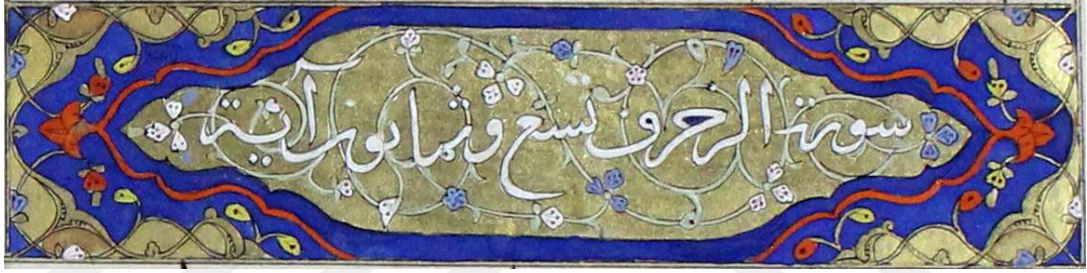 سورة الزخرف تسع وثمانون آية